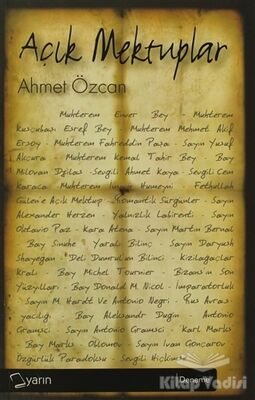 Açık Mektuplar
Ahmet Özcan
Muhterem Enver Bey - Muhterem
Kuşçubaşı Eşref Bey - Muhterem Mehmet Akif
Ersoy - Muhterem Fahreddin Paşa - Sayın Yusuf
Akçura - Muhterem Kemal Tahir Bey - Bay
Milovan Djilas - Sevgili Ahmet Kaya - Sevgili Cem
Karaca - Muhterem İmam Humeyni - Fethullah
Gülen'e Açık Mektup - Romantik Sürgünler - Sayın
Alexander Herzen - Yalnızlık Labirenti - Sayın
Octavio Paz - Kara Atena - Sayın Martin Bernal
- Bay Sinuhe - Yaralı Bilinç - Sayın Daryush
Shayegan - Deli Dumrul'un Bilinci - Kızılağaçlar
Kralı - Bay Michel Tournier - Bizans'ın Son
Yüzyılları - Bay Donald M. Nicol - İmparatorluk
- Sayın M. Hardt Ve Antonio Negri - Rus Avras-
yacılığı - Bay Aleksandr Dugin - Antonio
Gramsci - Sayın Antonio Gramsci - Karl Marks
- Bay Marks - Oblomov - Sayın İvan Gonçarov
Özgürlük Paradoksu - Sevgili Hiçkimse
yarın
Deneme
Kitap Vadisi